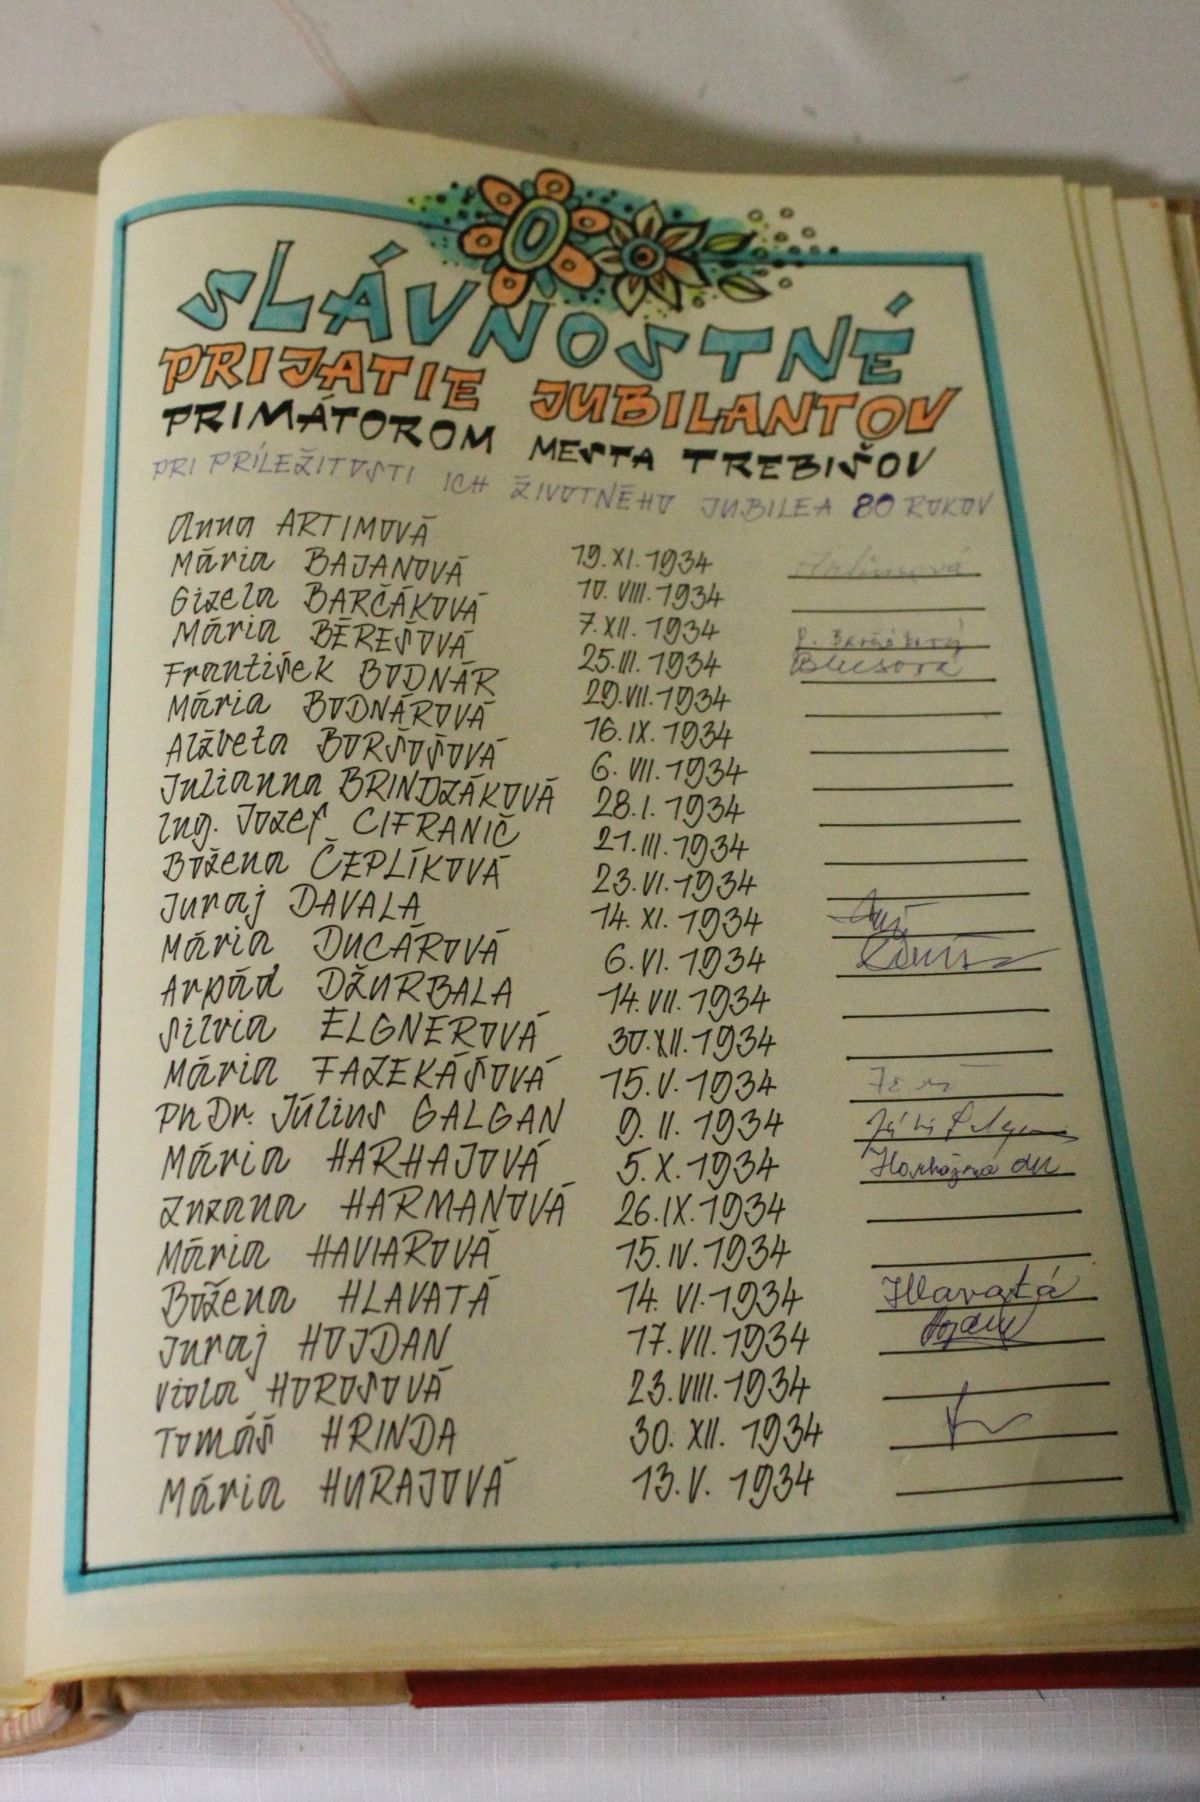 SLÁVNOSTNÉ
PRIJATIE JUBILANTOV
PRIMÁTOROM MESTA TREBIŠOV
PRI PRÍLEŽITOSTI ICH ŽIVOTNÉHO JUBILEA 80 ROKOV
Anna ARTIMOVÁ 19. XI. 1934
Mária BAJANOVÁ 10. VIII. 1934
Gizela BARČÁKOVÁ 7. XII. 1934
Mária BÉREŠOVÁ 25. III. 1934
František BODNÁR 29. VII. 1934
Mária BODNÁROVÁ 16. IX. 1934
Alžbeta BORŠOŠOVÁ 6. VII. 1934
Julianna BRINDZÁKOVÁ 28. I. 1934
Ing. Jozef CIFRANIČ 21. III. 1934
Božena ČEPLÍKOVÁ 23. VI. 1934
Juraj DAVALA 14. XI. 1934
Mária DUCÁROVÁ 6. VI. 1934
Arpád DŽURBALA 14. VII. 1934
Silvia ELGNEROVÁ 30. XII. 1934
Mária FAZEKÁŠOVÁ 15. V. 1934
PhDr. Július GALGAN 9. II. 1934
Mária HARHAJOVÁ 5. X. 1934
Zuzana HARMANOVÁ 26. IX. 1934
Mária HAVIAROVÁ 15. IV. 1934
Božena HLAVATÁ 14. VI. 1934 Hlavatá
Juraj HOJDAN 17. VII. 1934
Viola HOROSOVÁ 23. VIII. 1934
Tomáš HRINDA 30. XII. 1934
Mária HURAJOVÁ 13. V. 1934